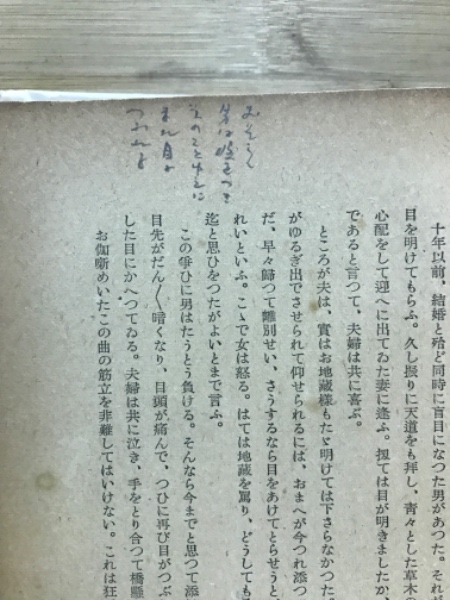 十年以前、結婚と殆ど同時に盲目になつた男があつた。それが
目を明けてもらふ。久し振りに天道をも拜し、靑々とした草木の
心配をして迎へに出てゐた妻に逢ふ。扨ては目が明きましたか、
であると言つて、夫婦は共に喜ぶ。
ところが夫は、實はお地藏樣もたゞ明けては下さらなかつた。
がゆるぎ出でさせられて仰せられるには、おまへが今つれ添つ
だ、早々歸つて離別せい、さうするなら目をあけてとらせうと
れいといふ。こゝで女は怒る。はては地藏を罵り、どうしても
迄と思ひをつたがよいとまで言ふ。
この爭ひに男はたうとう負ける。そんなら今までと思つて添
目先がだん〳〵暗くなり、目頭が痛んで、つひに再び目がつぶ
した目にかへつてゐる。夫婦は共に泣き、手をとり合つて橋懸
お伽噺めいたこの曲の筋立を非難してはいけない。これは狂